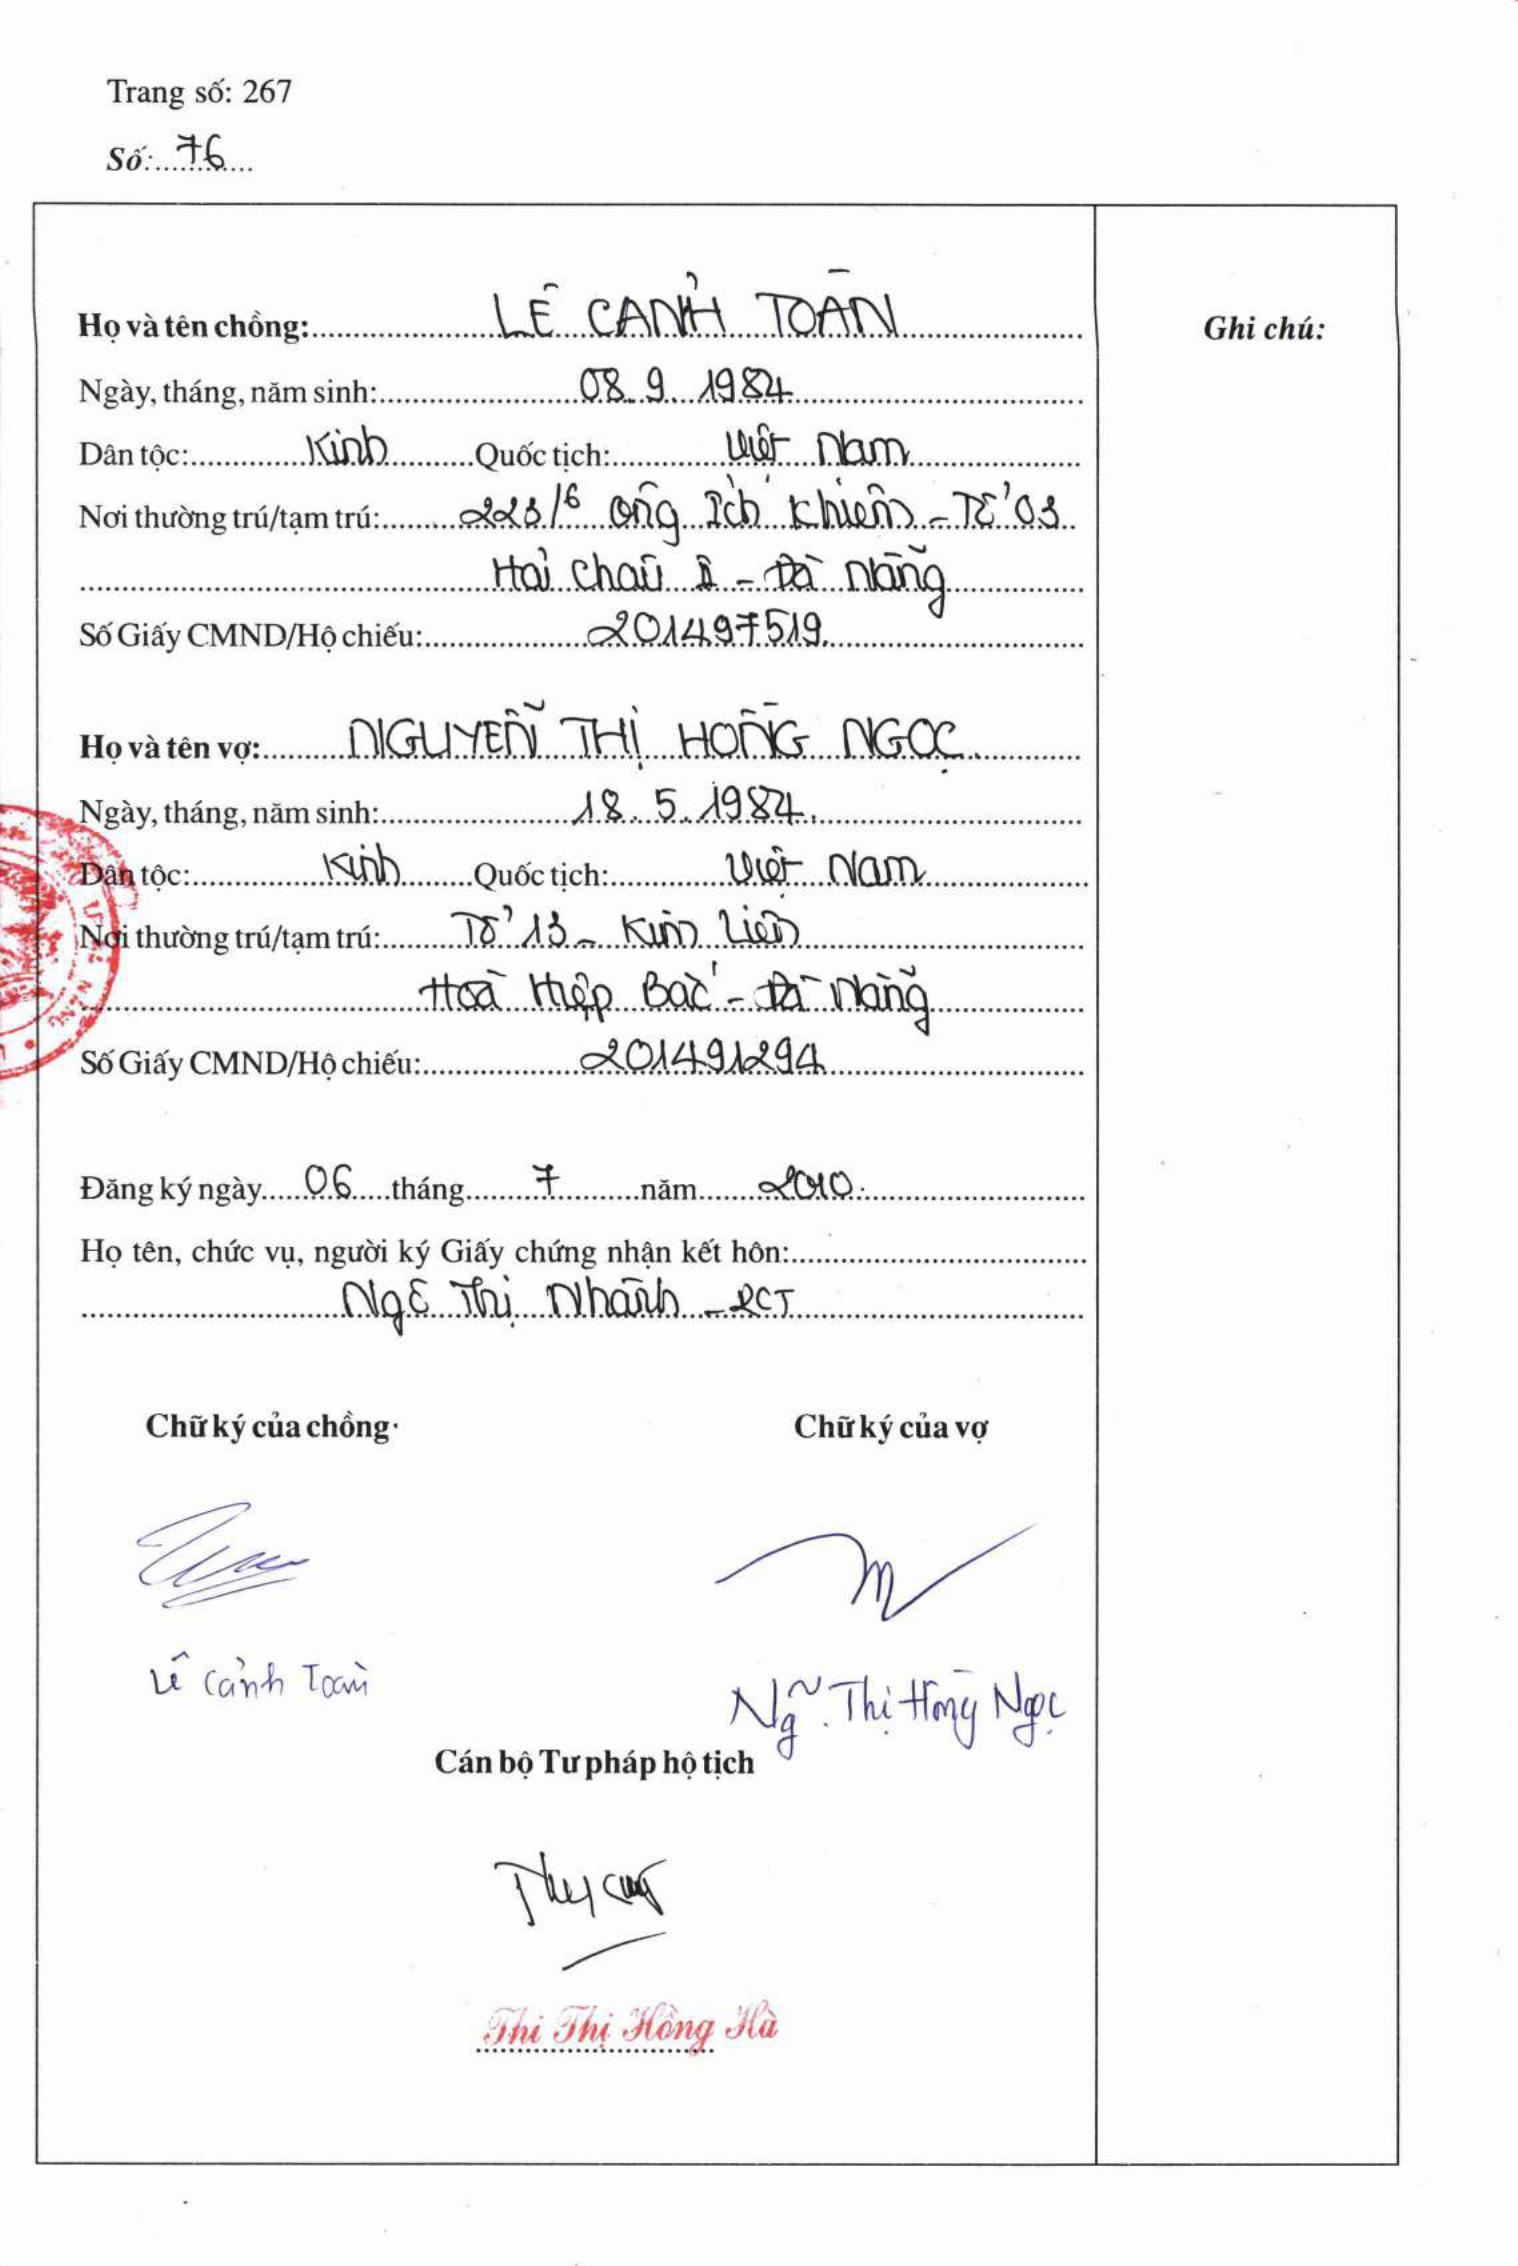 Trang số: 267
Số: 76
Họ và tên chồng: LÊ CẢNH TOÀN
Ghi chú:
Ngày, tháng, năm sinh: 08.9.1984
Dân tộc: Kinh Quốc tịch: Việt Nam
Nơi thường trú/tạm trú: 223/6 Ông Ích Khiêm - Tổ 03
Hải Châu II - Đà Nẵng
Số Giấy CMND/Hộ chiếu: 201497519
Họ và tên vợ: NGUYỄN THỊ HỒNG NGỌC
Ngày, tháng, năm sinh: 18.5.1984
Dân tộc: Kinh Quốc tịch: Việt Nam
Nơi thường trú/tạm trú: Tổ 13 - Kim Liên
Hoà Hiệp Bắc - Đà Nẵng
Số Giấy CMND/Hộ chiếu: 201491294
Đăng ký ngày 06 tháng 7 năm 2010
Họ tên, chức vụ, người ký Giấy chứng nhận kết hôn:
Ngô Thị Nhành - PCT
Chữ ký của chồng
Chữ ký của vợ
Lê Cảnh Toàn
Ngũ. Thị Hồng Ngọc
Cán bộ Tư pháp hộ tịch
Thi Thị Hồng Hà